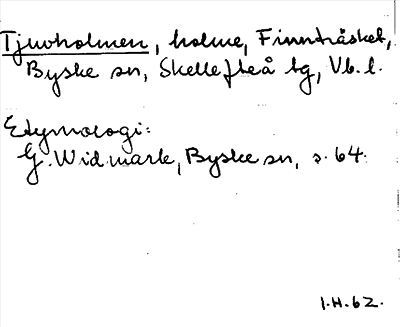 Tjuvholmen, holme, Finnträsket,
Byske sn, Skellefteå tg, Vb. l.
Etymologi:
G. Widmark, Byske sn, s. 64.
I.H. 62.